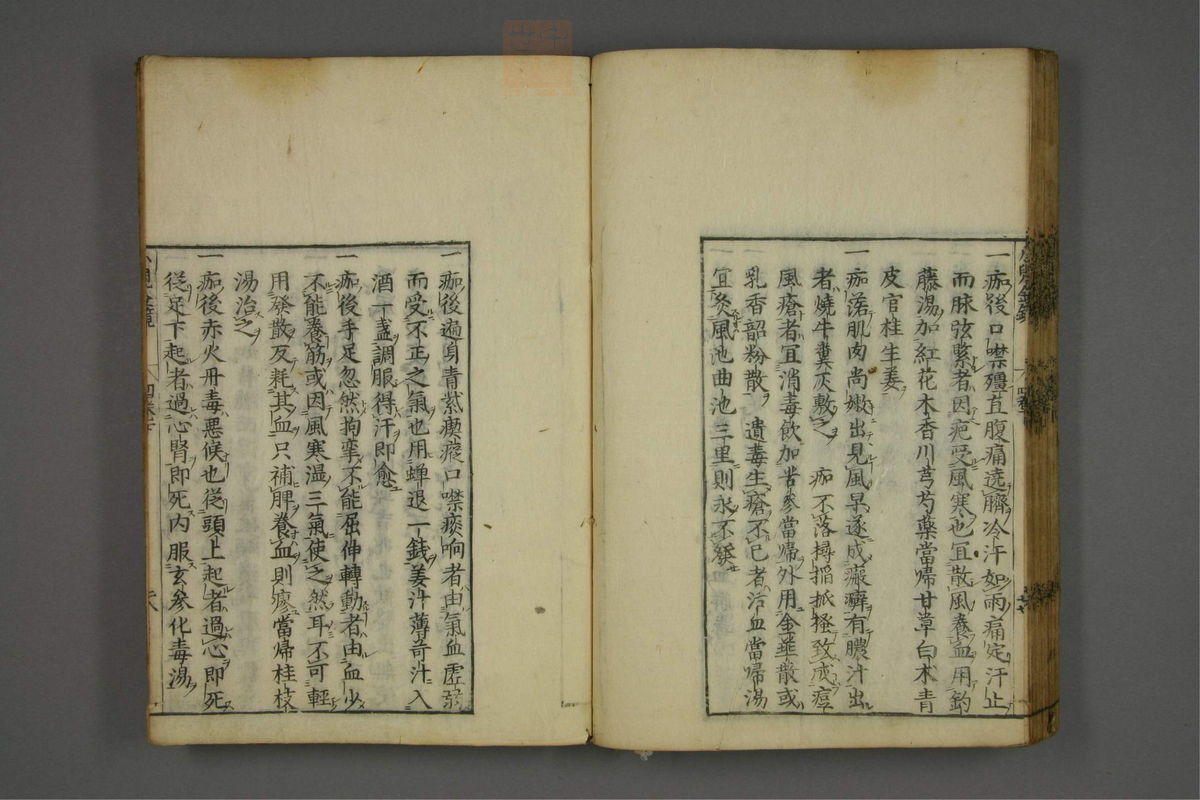 一痂後口噤殭直腹痛遶臍冷汗如雨痛定汗止
而脉弦緊者因疤受風寒也宜散風養血用鈎
藤湯加紅花木香川芎芍藥當帰甘草白木青
皮官桂生姜
一痂落肌肉尚嫩出見風早遂成癜癬有膿汁出
者燒牛糞灰敷之　痂不落撏搯抓搔致成痘
風瘡者宜消毒飲加苦参當帰外用金韮散或
乳香韶粉散　遺毒生瘡不已者活血當帰湯
宜灸風池曲池三里則永不發
一痂後遍身青紫瘈瘲口噤痰响者由氣血虚弱
而受不正之氣也用蝉退一錢姜汁薄荷汁入
酒一盞調服得汗即愈
一痂後手足忽然拘攣不能屈伸轉動者由血少
不能養筋或因風寒温三氣使之然耳不可輕
用發散反耗其血只補脾養血則瘳當帰桂枝
湯治之
一痂後赤火丹毒悪候也従頭上起者過心即死
従足下起者過心腎即死内服玄参化毒湯